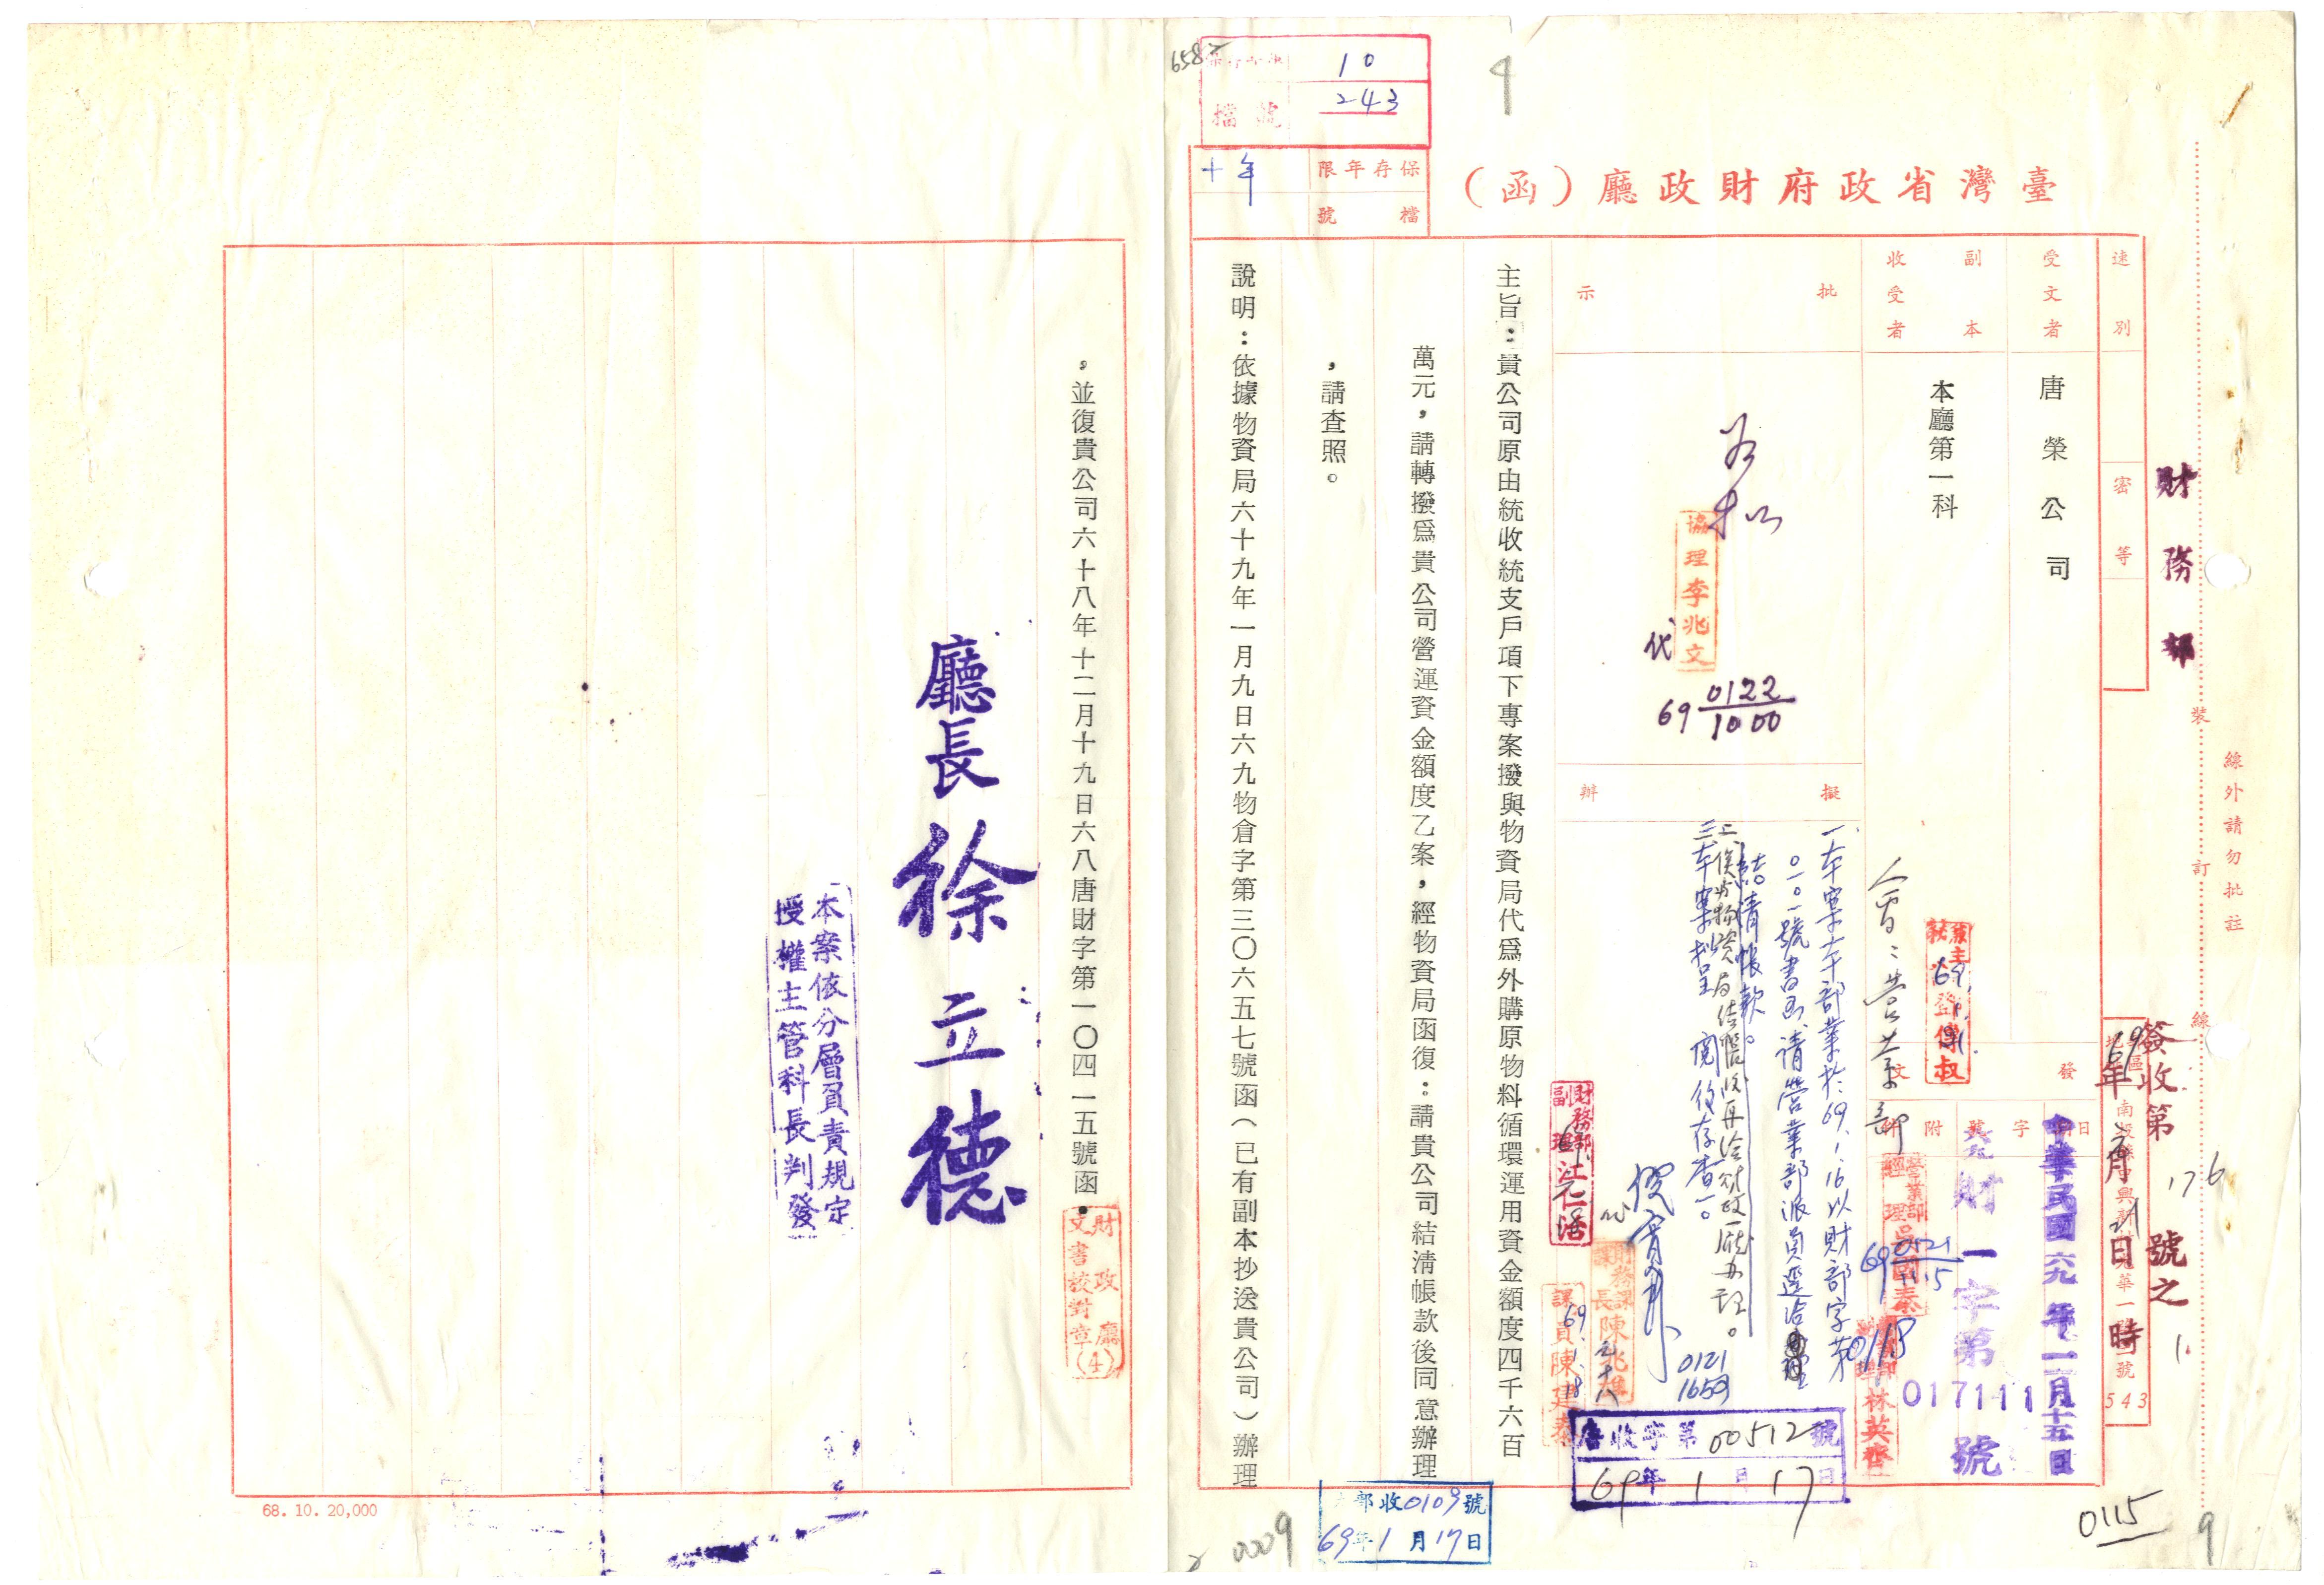 臺灣省政府財政廳（函）
檔號
10
243
6582
保存年限
十年
檔號
速別
密等
受文者
唐榮公司
副本收受者
本廳第一科
批示
協理李兆文
代
69 0122/1000
擬辦
一、本案本部業於69.1.16以財部字第
0101號書函請營業部派員逕洽
結清帳款。
三、本案擬呈 閱後存查。
會：營業部
發文
日期
中華民國六九年一月十五日
字號
六九財一字第017111號
附件
主旨：貴公司原由統收統支戶項下專案撥與物資局代爲外購原物料循環運用資金額度四千六百
萬元，請轉撥爲貴公司營運資金額度乙案，經物資局函復：請貴公司結清帳款後同意辦理
，請查照。
說明：依據物資局六十九年一月九日六九物倉字第三〇六五七號函（已有副本抄送貴公司）辦理
，並復貴公司六十八年十二月十九日六八唐財字第一〇四一五號函。
財政廳文書校對章(4)
廳長徐立德
本案依分層負責規定
授權主管科長判發
財務部
簽收第176號之1
69年元月21日時
裝訂線
線外請勿批註
543
財務部副理江仁潘
財務課課長陳兆雄
元、十八
課員陳建泰
69.1.18
0121
1650
唐收字第00512號
69年1月17日
部收0109號
69年1月17日
0115
0009
9
68.10.20,000